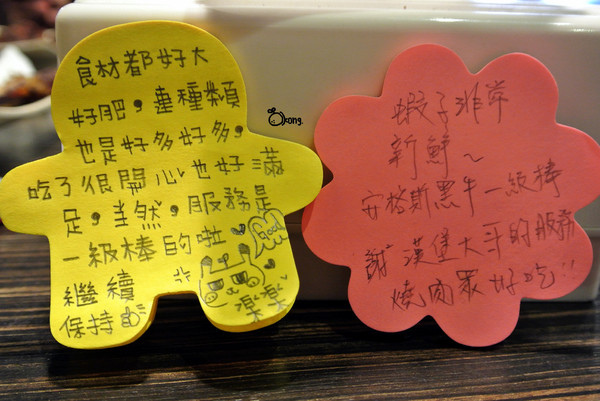 食材都好大
好肥，連種類
也是好多好多，
吃了很開心也好滿
足，當然，服務是
一級棒的啦
繼續
保持
Good
樂樂
kong.
蝦子非常
新鮮～
安格斯黑牛一級棒
謝 漢堡大哥的服務
燒肉眾好吃!!